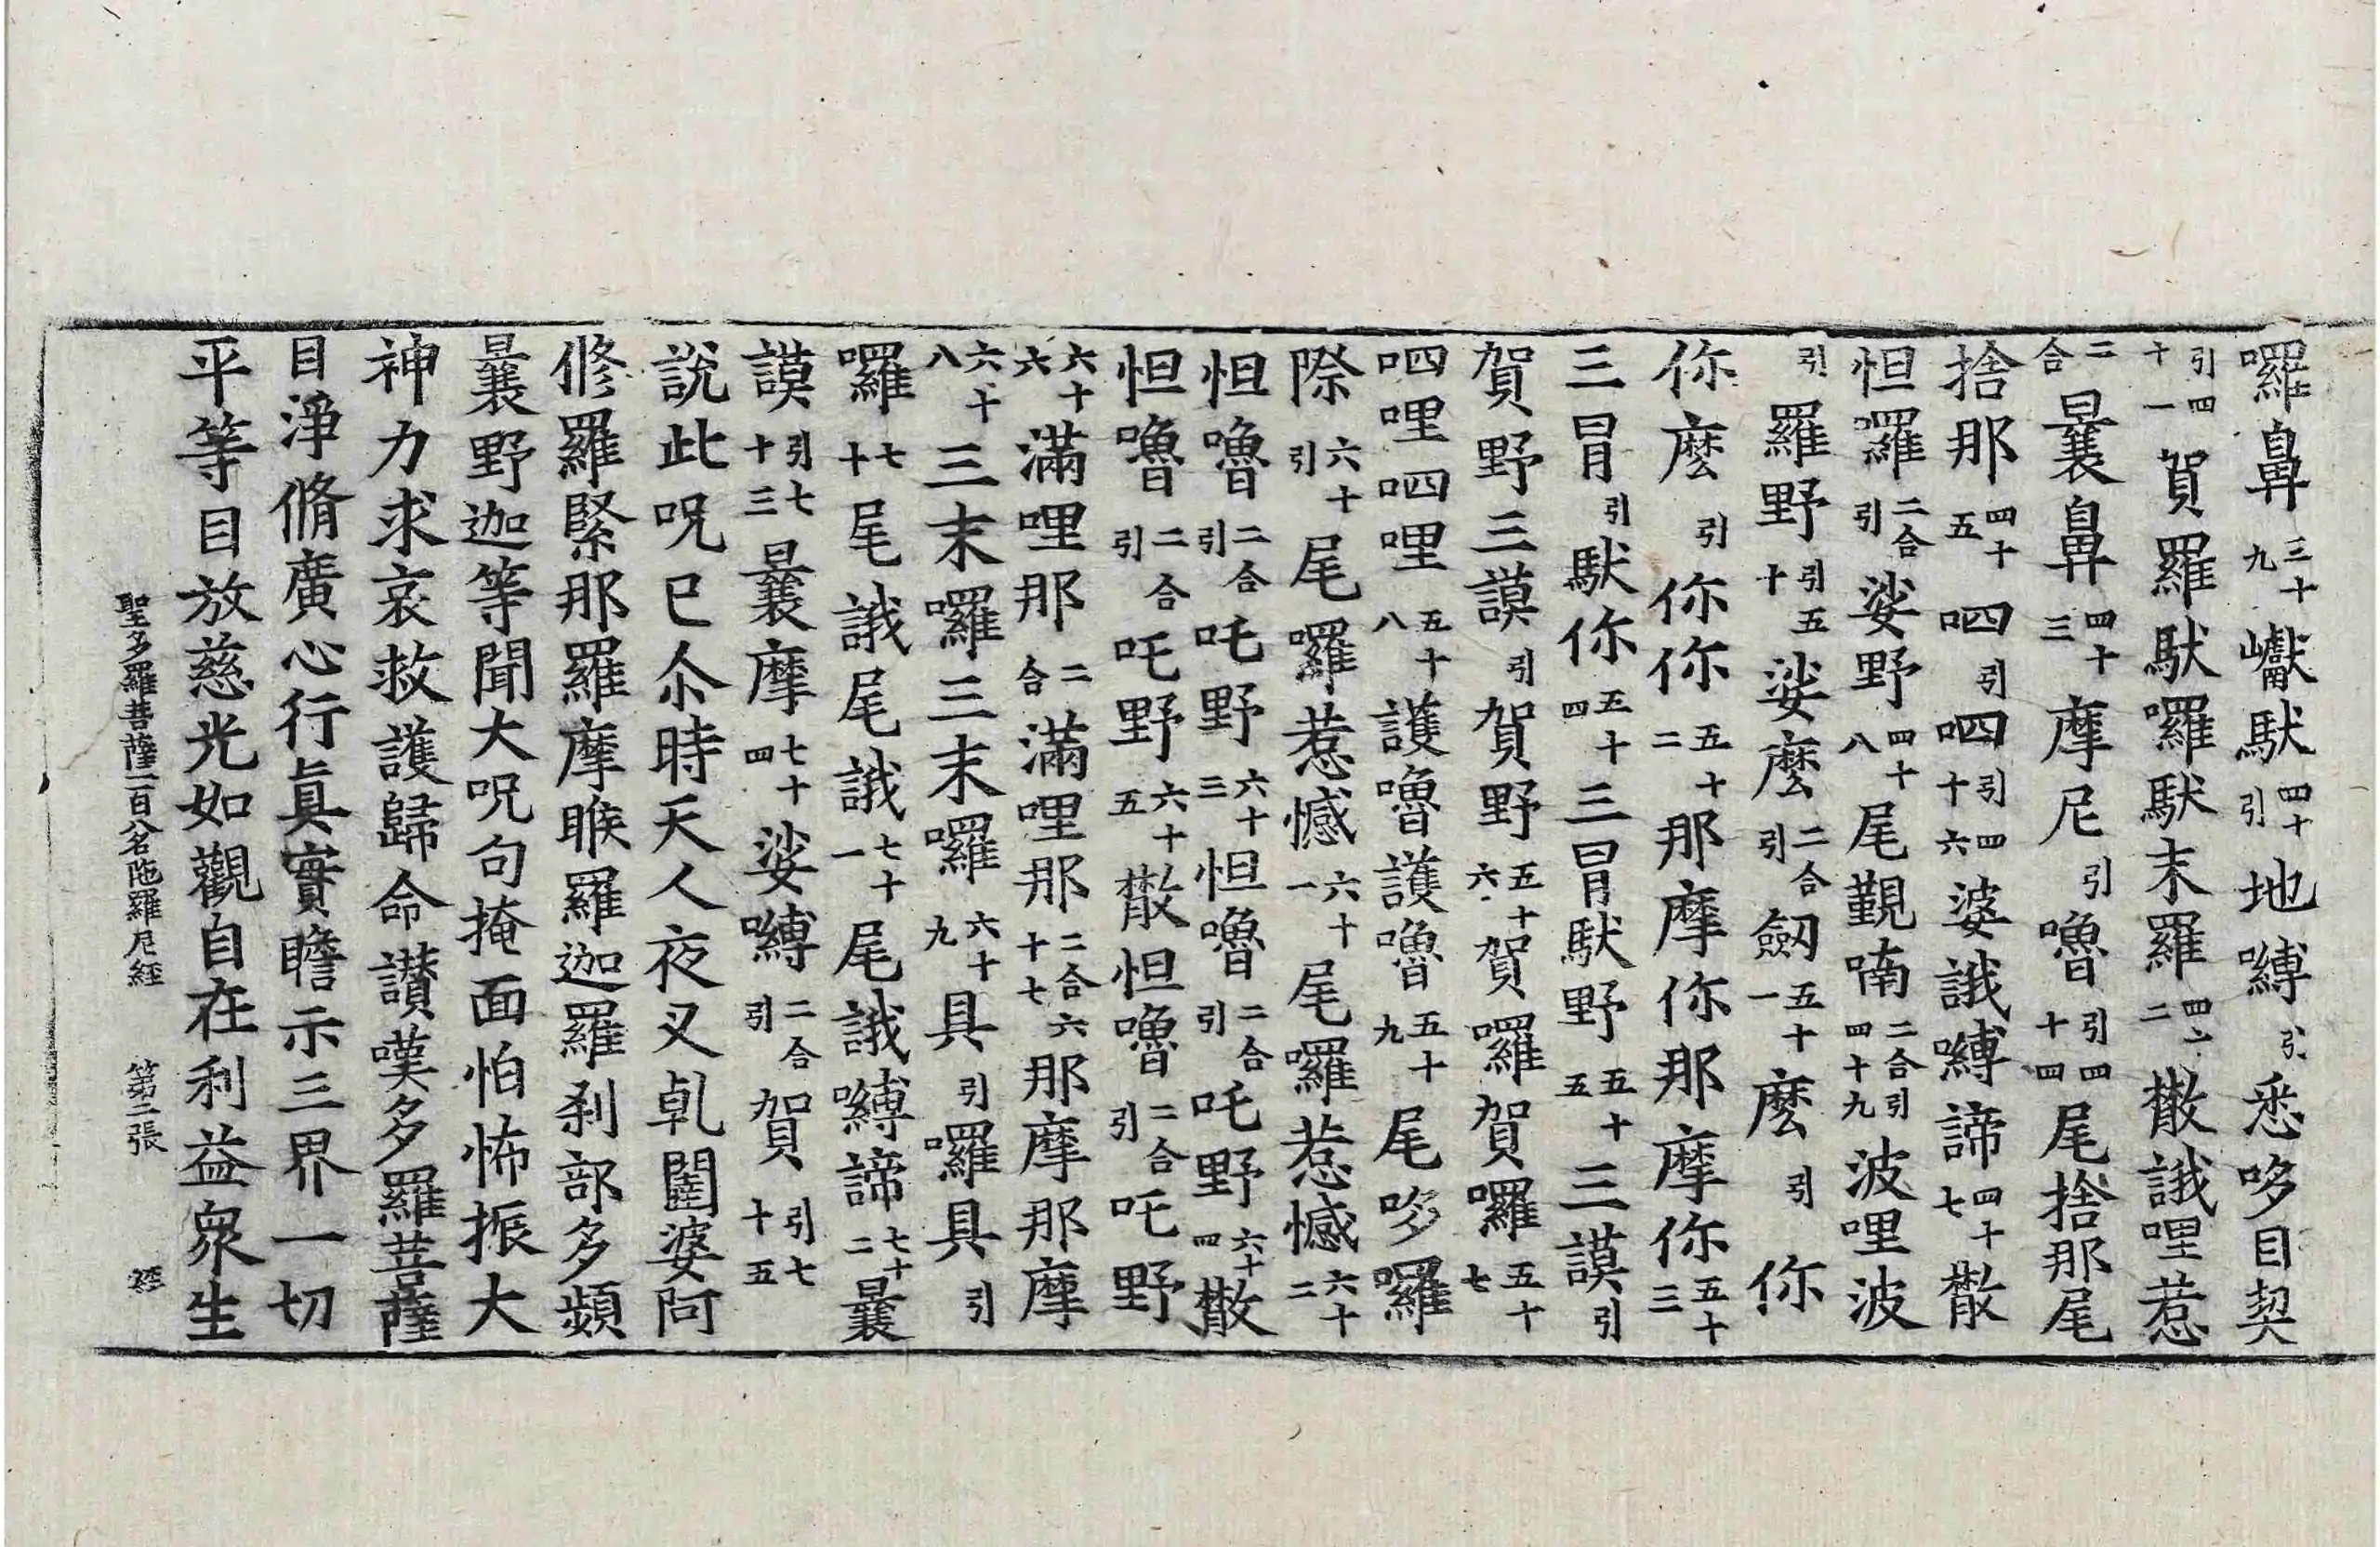 囉鼻三十九巘馱四十引地嚩引悉哆目契
引四十一賀羅馱囉馱末羅四十二㪚誐哩惹
二合曩鼻四十三摩尼引嚕引四十四尾捨那尾
捨那四十五呬引呬引四十六婆誐嚩諦四十七㪚
怛囉二合引娑野四十八尾覲喃二合引四十九波哩波
引羅野引五十娑麽二合引劒五十一麽引你
你麽引你你五十二那摩你那摩你五十三
三冒引馱你五十四三冒馱野五十五三謨引
賀野三謨引賀野五十六賀囉賀囉五十七
呬哩呬哩五十八護嚕護嚕五十九尾哆囉
際六十引尾囉惹憾六十一尾囉惹憾六十二
怛嚕二合引吒野六十三怛嚕二合引吒野六十四㪚
怛嚕二合引吒野六十五㪚怛嚕二合引吒野
六十六滿哩那二合滿哩那二合六十七那摩那摩
六十八三末囉三末囉六十九具引囉具引
囉七十尾誐尾誐七十一尾誐嚩諦七十二曩
謨引七十三曩摩七十四娑嚩二合引賀引七十五
說此呪已尒時天人夜叉乹闥婆阿
修羅緊那羅摩睺羅迦羅刹部多頻
曩野迦等聞大呪句掩面怕怖振大
神力求哀救護歸命讃嘆多羅菩薩
目淨脩廣心行眞實瞻示三界一切
平等目放慈光如觀自在利益衆生
聖多羅菩薩一百八名陁羅尼經 第二張